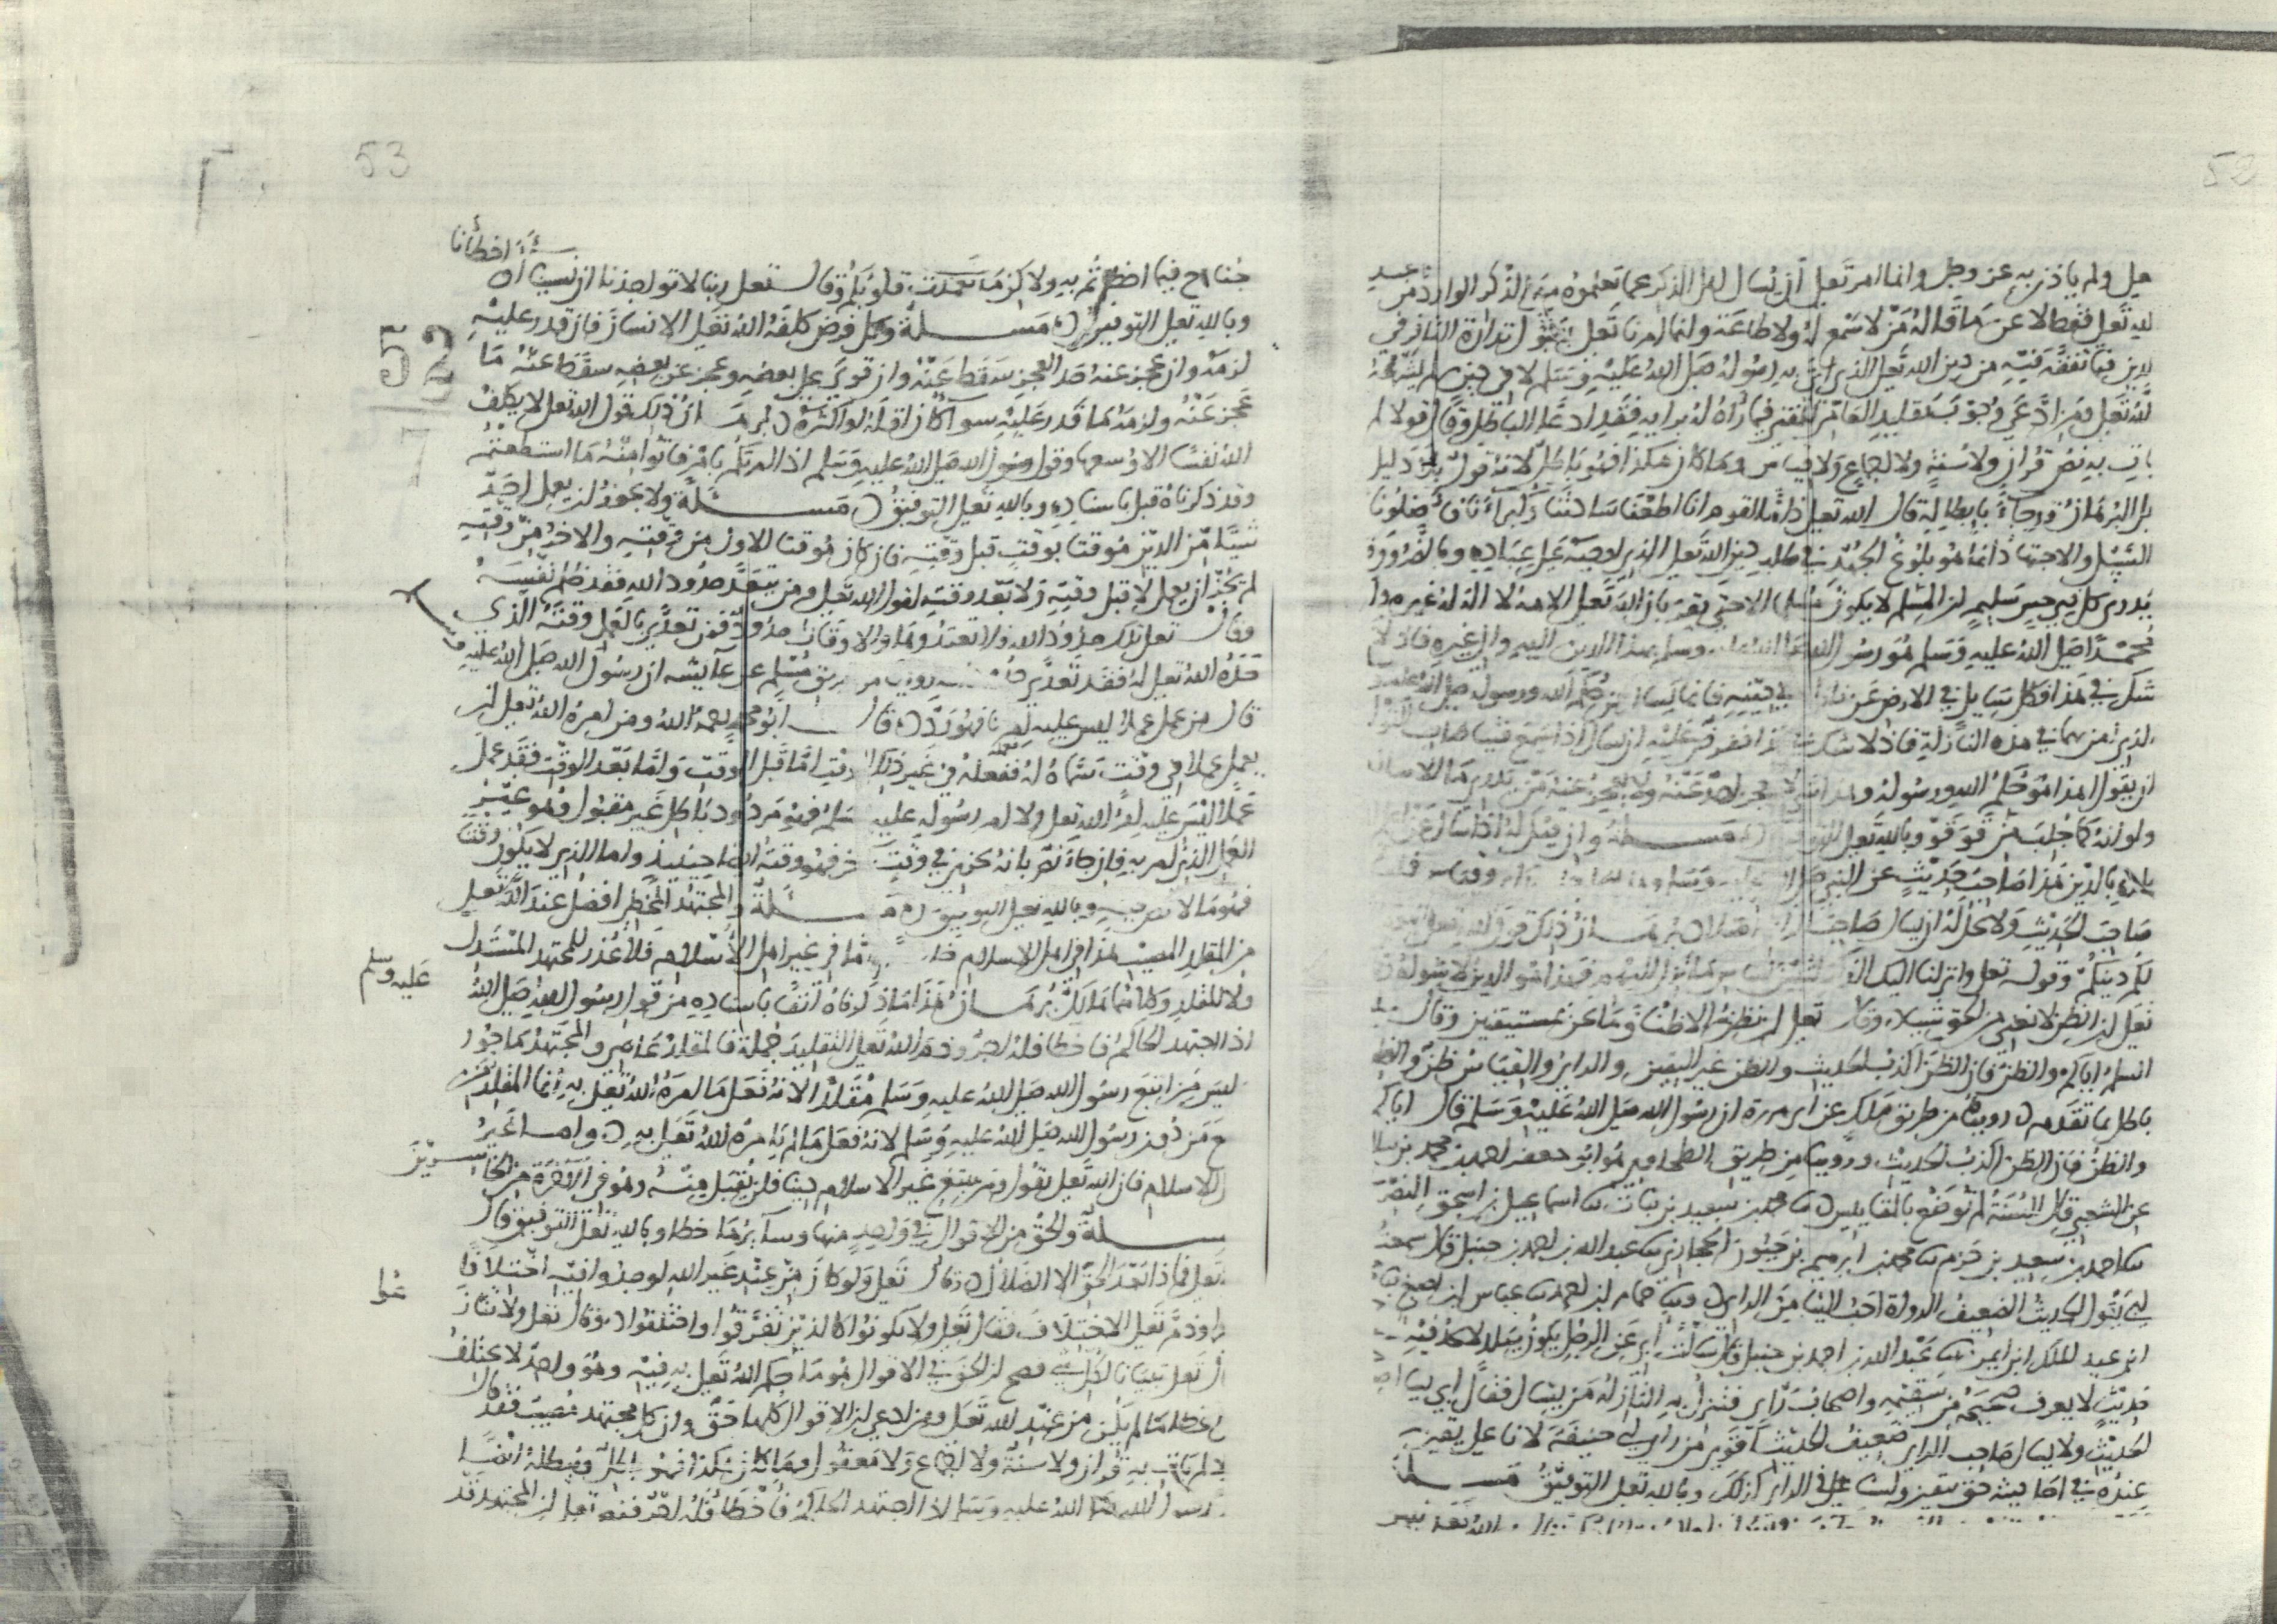 52
يل ولم ياذن به عز وجل وانما امر تعلى ان يسال اهل الذكر عما يعلموه من الذكر الوارد من عند
الله تعلى فقط لا عن ما قاله من لا سمع له ولا طاعة وانما امرنا تعلى بقبول نذارة النافر في
الدين فيما تفقه فيه من دين الله تعلى الذي اتى به رسوله صلى الله عليه وسلم لا في دين لم يشرعه
الله تعلى ومن ادعى وجوب تقليد العامي للمفتي فيما رآه له برايه فقد ادعى الباطل وقال قولا لم
يات به نص قرآن ولا سنة ولا اجماع ولا قياس وما كان هكذا فهو باطل لانه قول بلا دليل
بل البرهان قد جاء بابطاله قال الله تعلى ذاما لقوم انا اطعنا سادتنا وكبراءنا فاضلونا
السبيل والاجتهاد انما هو بلوغ الجهد في طلب دين الله تعلى الذي اوجبه على عباده وبالضرورة
يدري كل ذي حس سليم ان المسلم لا يكون مسلما الا حتى يقر بان الله تعلى الاهه لا اله له غيره وان
محمدا صلى الله عليه وسلم هو رسول الله صلى الله عليه وسلم بهذا الدين اليه والى غيره فاذ لا
شك في هذا فكل سايل في الارض عن نازلة في دينه فانما يسال عن حكم الله ورسوله صلى الله عليه
الذي امن بهما في هذه النازلة فاذ لا شك هذا ففرض عليه ان يسال اذا سمع فتيا
ان يقول اهذا هو حكم الله ورسوله وهذا لا يعجز احد عنه ولا يعجز عنه من يدري ما الاسلام
ولو انه كما جلب من قوقو وبالله تعلى التوفيق مسلة وان قيل له اذا سال عن
بلده بالدين هذا صاحب حديث عن النبي
صاحب الحديث ولا يحل له ان يسال صاحب الراي اصلا برهان ذلك قول الله تعلى
لكم دينكم وقوله تعلى وانزلنا اليك الذكر لتبين للناس ما نزل اليهم فهذا هو الدين لا
تعلى ان الظن لا يغني من الحق شيئا وقال تعلى ان نظن الا ظنا وما نحن بمستيقنين وقال
السلم اياكم والظن فان الظن اكذب الحديث والظن غير اليقين والراي والقياس ظن والظن
باطل بما تقدم روينا من طريق ملك عن ابي هريرة ان رسول الله صلى الله عليه وسلم قال اياكم
والظن فان الظن اكذب الحديث وروينا من طريق الطحاوي هو ابو جعفر احمد بن محمد بن
عن الشعبي قال السنة لم توضع بالمقاييس نا محمد بن سعيد بن نبات نا اسماعيل بن اسحق النصري
نا احمد بن سعيد بن حزم نا محمد بن ابرهيم بن حيون الحجازي نا عبد الله بن احمد بن حنبل قال سمعت
ابي يقول الحديث الضعيف احب الينا من الراي ونا حمام بن احمد نا عباس بن اصبغ نا
ابن عبد الملك ابن ايمن نا عبد الله بن احمد بن حنبل قال سالت ابي عن الرجل يكون ببلد لا يجد فيه
حديث لا يعرف صحيحه من سقيمه واصحاب راي فتنزل به النازلة من يسال فقال ابي يسال
الحديث ولا يسال صاحب الراي ضعيف الحديث اقوى من راي ابي حنيفة لانا على يقين
عنده في احاديثه حق بيقين وليس على في الراي كذلك وبالله تعلى التوفيق مسلة
53
اخطانا
جناح فيما اخطاتم به ولاكن ما تعمدت قلوبكم وقال تعلى ربنا لا تواخذنا ان نسينا او
وبالله تعلى التوفيق مسلة وكل فرض كلفه الله تعلى الانسان فان قدر عليه
52
لزمه وان عجز عنه جملة العجز سقط عنه وان قوي على بعضه وعجز عن بعضه سقط عنه ما
عجز عنه ولزمه ما قدر عليه سوا كان اقله او اكثره برهان ذلك قول الله تعلى لا يكلف
7
الله نفسا الا وسعها وقول رسول الله صلى الله عليه وسلم اذا امرتكم بامر فاتوا منه ما استطعتم
وقد ذكرناه قبل باسناده وبالله تعلى التوفيق مسئلة ولا يجوز ان يعمل احد
شيئا من الدين موقتا بوقت قبل وقته فان كان موقتا الاول من وقته والاخر من وقته
لم يجز ان يعمل لا قبل وقته ولا بعد وقته لقول الله تعلى ومن يتعد حدود الله فقد ظلم نفسه
وقال تعلى تلك حدود الله فلا تعتدوها والاوقات حدود فمن تعدى بالعمل وقته الذي
حده الله تعلى له فقد تعدى حدود الله روينا من طريق مسلم عن عايشه ان رسول الله صلى الله عليه وسلم
قال من عمل عملا ليس عليه امرنا فهو رد قال ابو محمد رحمه الله ومن امره الله تعلى ان
يعمل عملا في وقت سماه له فعمله في غير ذلك الوقت اما قبل الوقت واما بعد الوقت فقد عمل
عملا ليس عليه امر الله تعلى ولا امر رسوله عليه السلم فهو مردود باطل غير مقبول وهو غير
العمل الذي امر به فان جاء نص بانه يجزي في وقت اخر فهو وقته ايضا حينئذ واما الذي لا يكون وقتا
فهو ما لا نص فيه وبالله تعلى التوفيق مسئلة والمجتهد المخطي افضل عند الله تعلى
من المقلد المصيب هذا في اهل الاسلام خاصة واما في غير اهل الاسلام فلا عذر للمجتهد المستدل
ولا للمقلد وكلاهما هالك برهان هذا ما ذكرناه انفا باسناده من قول رسول الله صلى الله
عليه وسلم
اذا اجتهد الحاكم فاخطا فله اجر وذم الله تعلى التقليد جملة فالمقلد عاص والمجتهد ماجور
ليس من اتبع رسول الله صلى الله عليه وسلم مقلدا لانه فعل ما امره الله تعلى به وانما المقلد من
ع من دون رسول الله صلى الله عليه وسلم لانه فعل ما لم يامره الله تعلى به واما غير
الاسلام فان الله تعلى يقول ومن يبتغ غير الاسلام دينا فلن يقبل منه وهو في الاخرة من الخا
سرين
سلة والحق من الاقوال في واحد منها وسايرها خطا وبالله تعلى التوفيق قال
تعلى فماذا بعد الحق الا الضلال وقال تعلى ولو كان من عند غير الله لوجدوا فيه اختلافا
وذم تعلى الاختلاف فقال تعلى ولا تكونوا كالذين تفرقوا واختلفوا وقال تعلى ولا تناز
عوا
تعلى تبيانا لكل شيء فصح ان الحق في الاقوال هو ما حكم الله تعلى به فيه وهو واحد لا يختلف
خطا ما لم يكن من عند الله تعلى ومن ادعى ان الاقوال كلها حق وان كل مجتهد مصيب فقد قال
لم يات به قرآن ولا سنة ولا اجماع ولا معقول وما كان هكذا فهو باطل ويبطله ايضا
رسول الله صلى الله عليه وسلم اذا اجتهد الحاكم فاخطا فله اجر فنص تعلى ان المجتهد قد